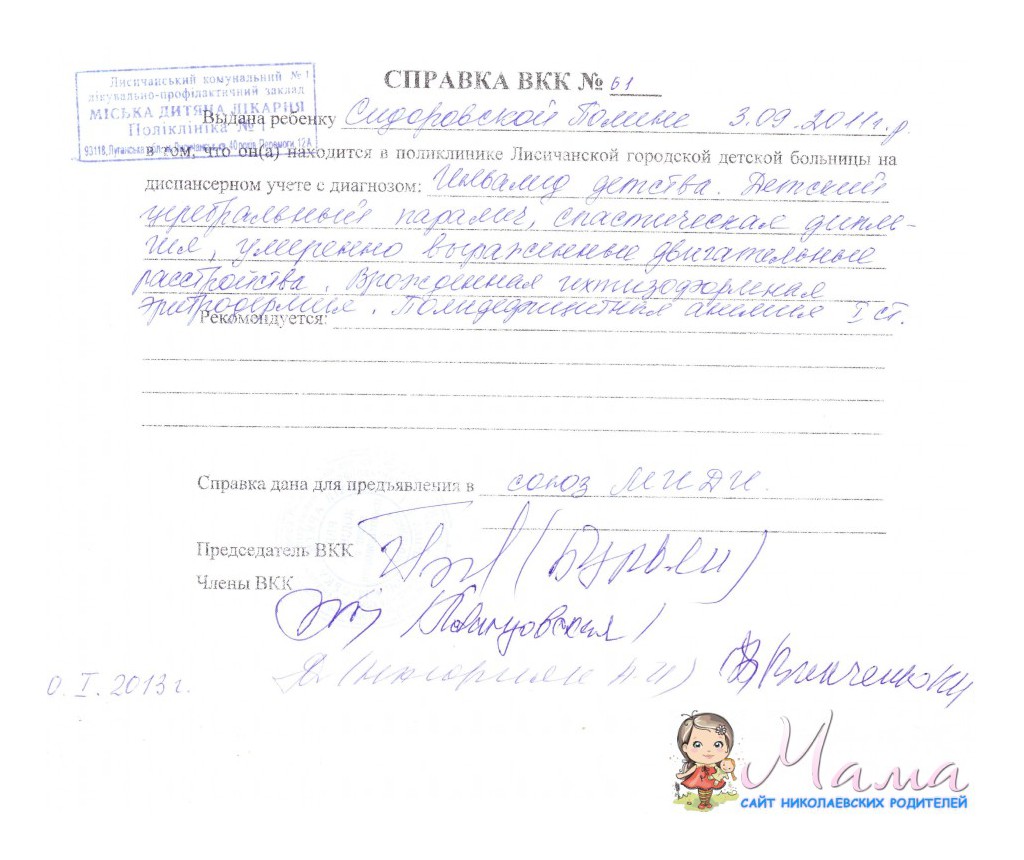 СПРАВКА ВКК № 61
Лисичанський комунальний №1
лікувально-профілактичний заклад
МІСЬКА ДИТЯЧА ЛІКАРНЯ
Поліклініка №1
93118, Луганська обл., м. Лисичанськ, кв. 40 років Перемоги, 12А
Выдана ребенку Сидоровской Полине 3.09.2011г.р
в том, что он(а) находится в поликлинике Лисичанской городской детской больницы на
диспансерном учете с диагнозом: Инвалид детства. Детский
церебральный паралич, спастическая дипле-
гия, умеренно выраженные двигательные
расстройства. Врожденная ихтиозоформная
Эритродермия. Полидефицитная анемия I ст.
Рекомендуется:
Справка дана для предъявления в союз МИДИ.
Председатель ВКК (Бурьян)
Члены ВКК
0. I. 2013г.
Мама
САЙТ НИКОЛАЕВСКИХ РОДИТЕЛЕЙ